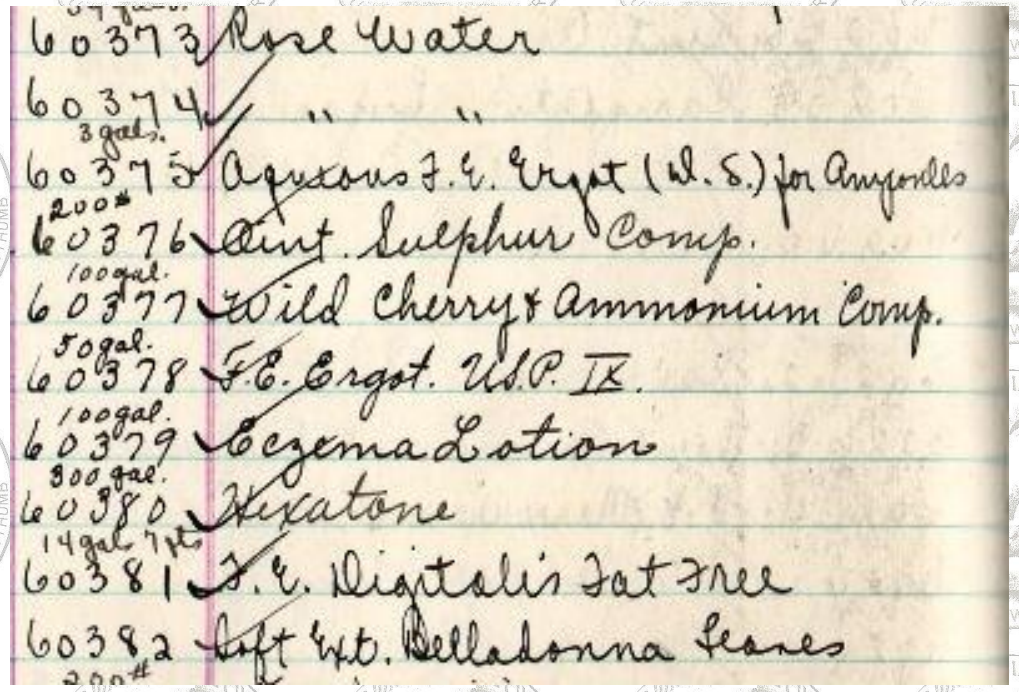 60373 Rose Water
60374 " "
3 gals.
60375 Aqueous F.E. Ergot (W.S.) for Ampoules
200#
60376 Oint. Sulphur Comp.
100 gal.
60377 Wild Cherry & Ammonium Comp.
50 gal.
60378 F.E. Ergot. U.S.P. IX.
100 gal.
60379 Eczema Lotion
300 gal.
60380 Hexatone
14 gals 7 pts
60381 F.E. Digitalis Fat Free
60382 Soft Ext. Belladonna Leaves
200#